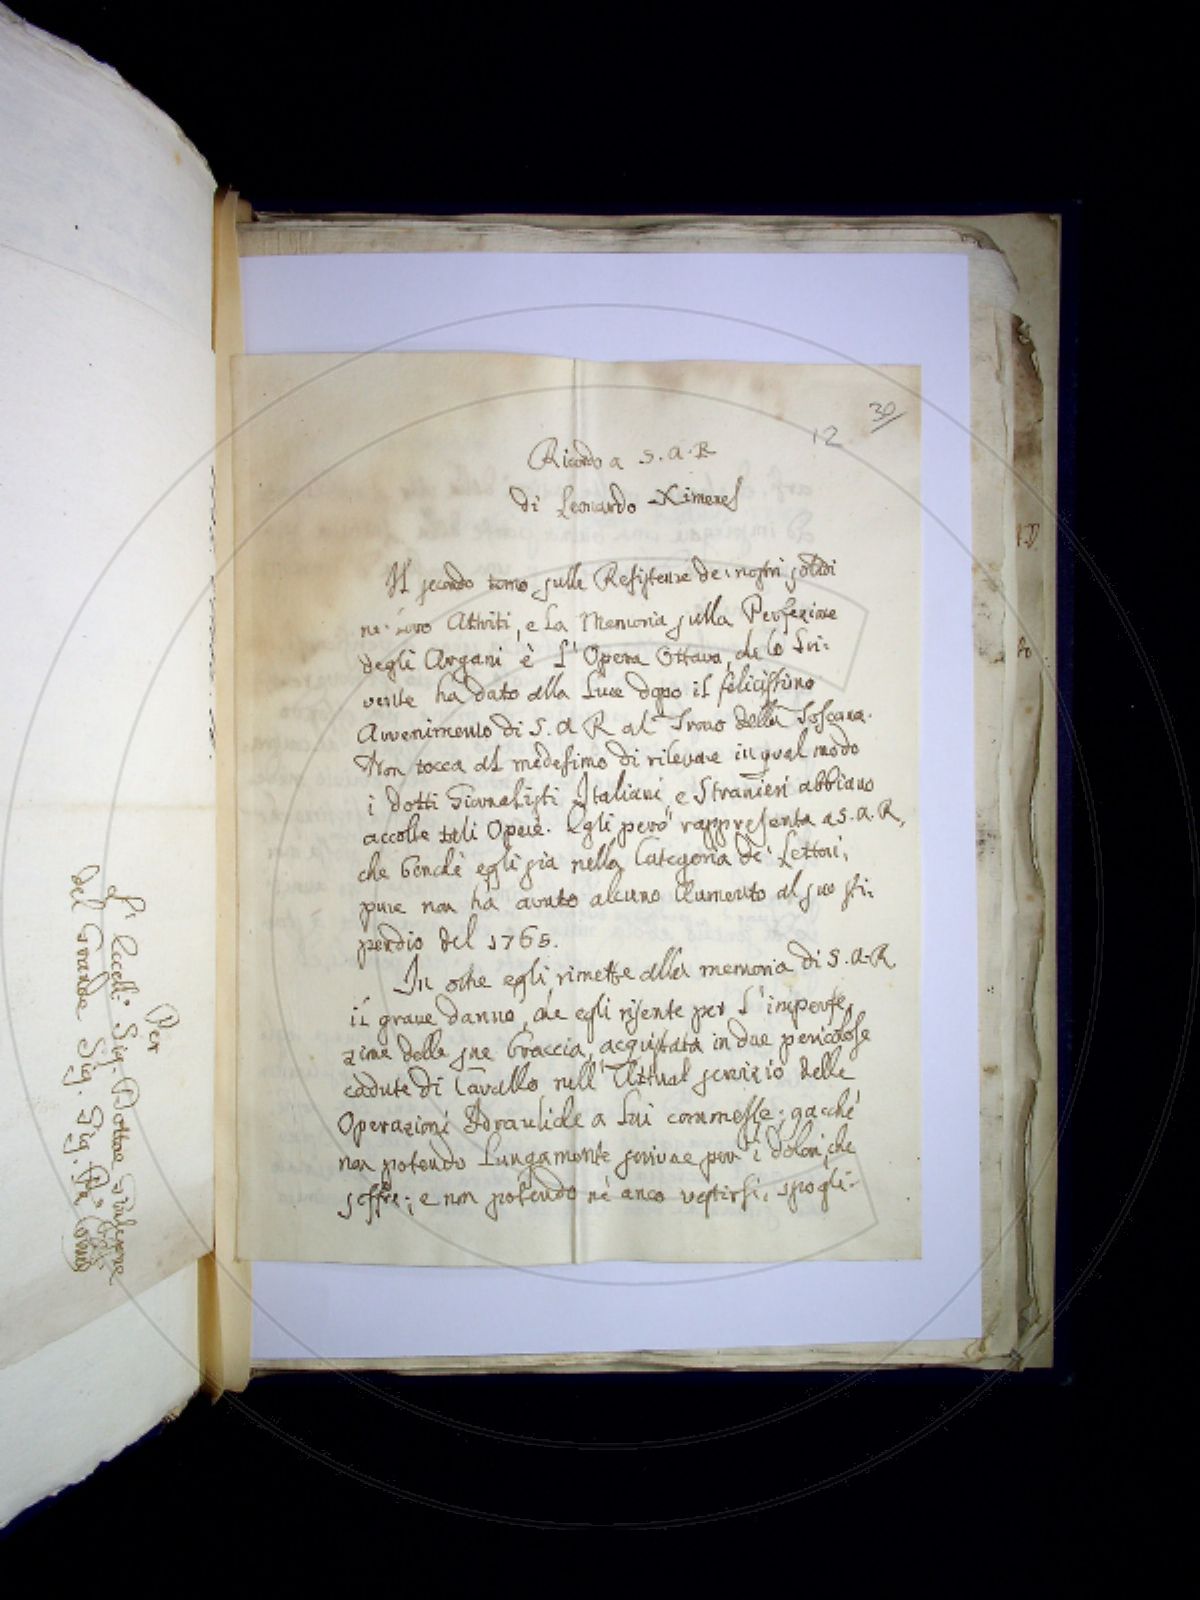 30
12
Ricordo a S. A. R
di Leonardo Ximenes
Il secondo tomo sulle Resistenze de' nostri solidi
ne' loro Attriti, e la Memoria sulla Perfezione
degli Argani è L'Opera Ottava, che lo Scri-
vente ha dato alla Luce dopo il felicissimo
Avvenimento di S. A R al Trono della Toscana.
Non tocca al medesimo di rilevare in qual modo
i dotti Giornalisti Italiani, e Stranieri abbiano
accolte tali Opere. Egli però rappresenta a S. A. R,
che benchè egli sia nella Categoria de' Lettori,
pure non ha avuto alcuno Aumento al suo sti-
pendio del 1765.
In oltre egli rimette alla memoria di S. A. R
il grave danno, che egli risente per L'imperfe-
zione delle sue braccia, acquistata in due pericolose
cadute di Cavallo nell'Attual servizio delle
Operazioni Idrauliche a Lui commesse; giacchè
non potendo Lungamente scrivere per i dolori, che
soffre; e non potendo nè anco vestirsi, spogli-
Per
L' Eccell.º Sig. Dottore Giuseppe
del Grande Sig. Sig.